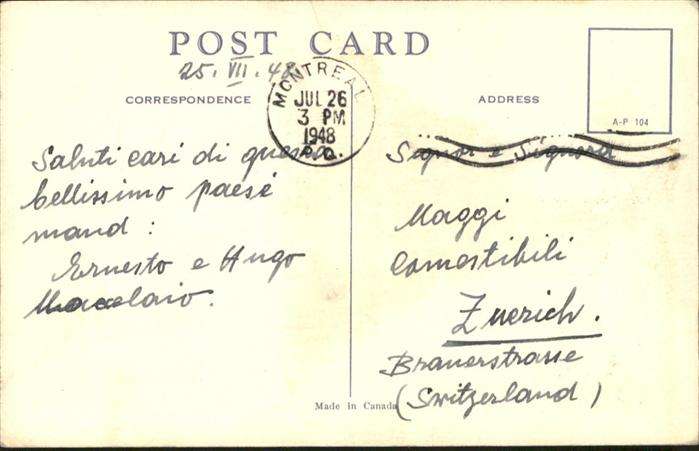 POST CARD
25. VII. 48
MONTREAL
JUL 26
3 PM
1948
P.Q.
CORRESPONDENCE
ADDRESS
A-P 104
Saluti cari di questo
bellissimo paese
mand :
Ernesto e Hugo
Signor e Signora
Maggi
Comestibili
Zuerich.
Brauerstrasse
(Switzerland)
Made in Canada